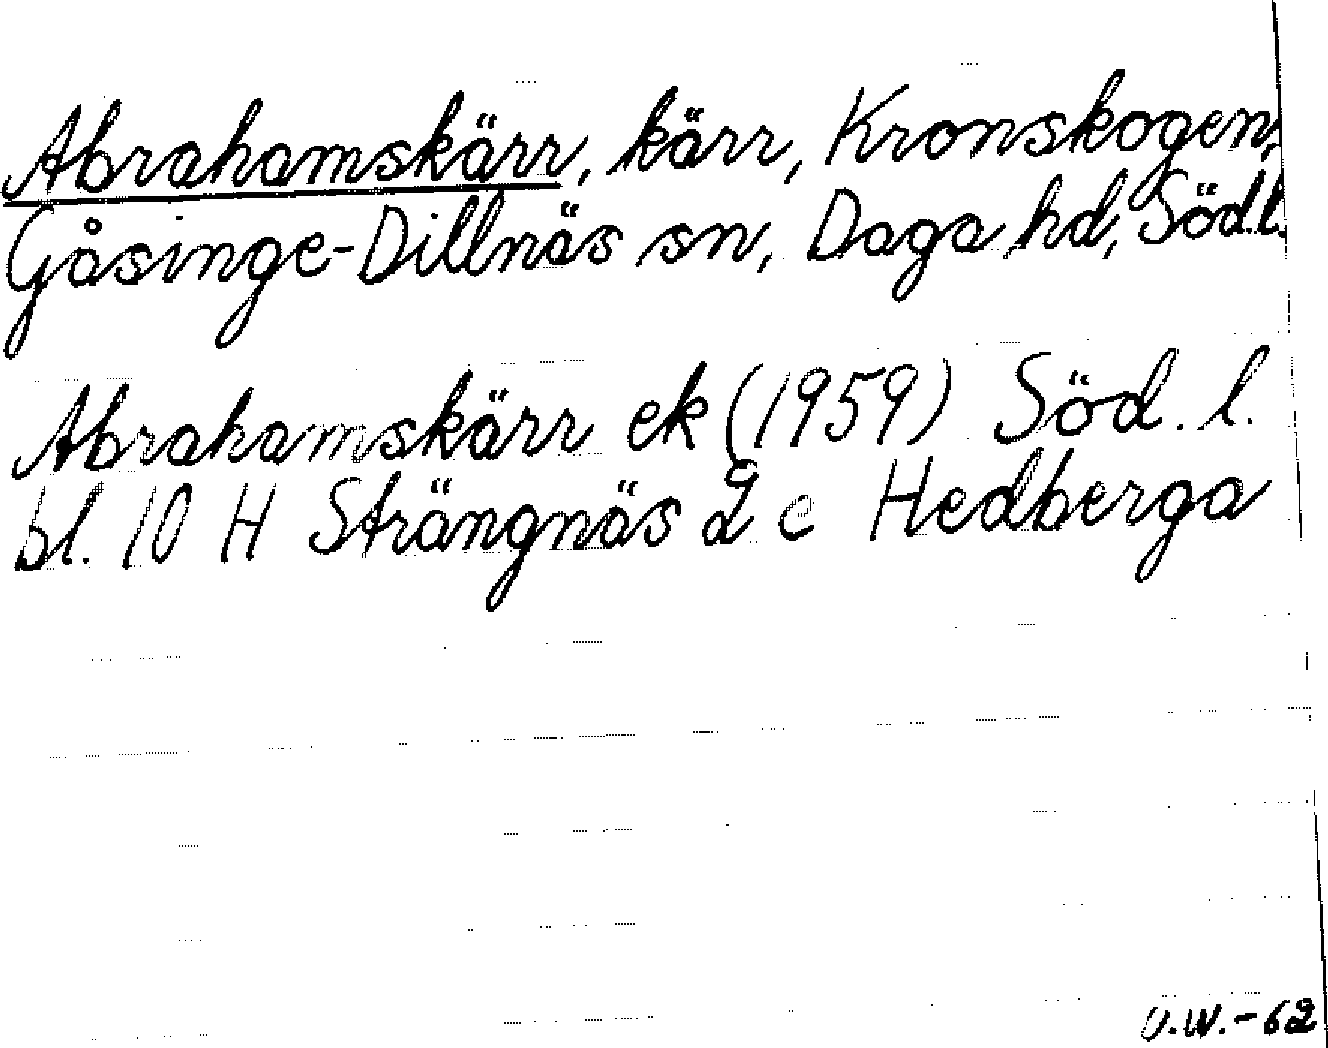 Abrahamskärr, kärr, Kronskogen,
Gåsinge-Dillnäs sn, Daga hd, Södl.
Abrahamskärr ek (1959) Söd. l.
bl. 10 H Strängnäs 2 c Hedberga
O.W.-62